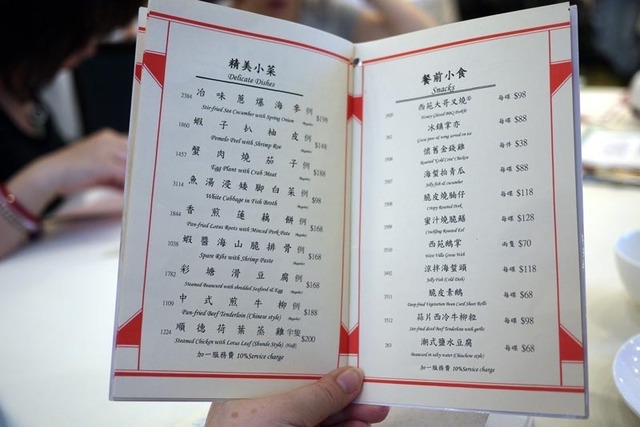 精美小菜
Delicate Dishes
2384 冶味蔥爆海參 例 $198
Stir-fried Sea Cucumber with Spring Onion
1860 蝦子扒柚皮 例 $148
Pomelo Peel with Shrimp Roe
1457 蟹肉燒茄子 例 $188
Egg Plant with Crab Meat
3114 魚湯浸矮腳白菜 例 $98
White Cabbage in Fish Broth
1844 香煎蓮藕餅 例 $168
Pan-fried Lotus Roots with Minced Pork Pate
1038 蝦醬海山脆排骨 例 $168
Spare Ribs with Shrimp Paste
1782 彩塘滑豆腐 例 $168
Steamed Beancurd with shredded Seafood & Egg
1109 中式煎牛柳 例 $188
Pan-fried Beef Tenderloin (Chinese style)
1224 順德荷葉蒸雞 半隻 $200
Steamed Chicken with Lotus Leaf (Shunde Style) (Half)
加一服務費 10%Service charge
餐前小食
Snacks
西苑大哥叉燒 每碟 $98
Honey Glazed BBQ Pork
冰鎮掌亦 每碟 $88
懷舊金錢雞 每件 $38
Roasted "Gold Coin" Chicken
海蜇拍青瓜 每碟 $88
Jelly fish & cucumber
脆皮燒腩仔 每碟 $118
Crispy Roasted Pork
蜜汁燒脆鱔 每碟 $128
Crackling Roasted Eel
西苑鵝掌 兩隻 $70
West Villa Goose Web
涼拌海蜇頭 每碟 $118
Jelly Fish (Cold Dish)
脆皮素鵝 每碟 $68
Deep-fried Vegetarian Bean Curd Sheet Rolls
蒜片西冷牛柳粒 每碟 $98
Stir-fried diced Beef Tenderloin with garlic
潮式鹽水豆腐 每碟 $68
Beancurd in salty water (Chiuchow style)
加一服務費 10%Service charge